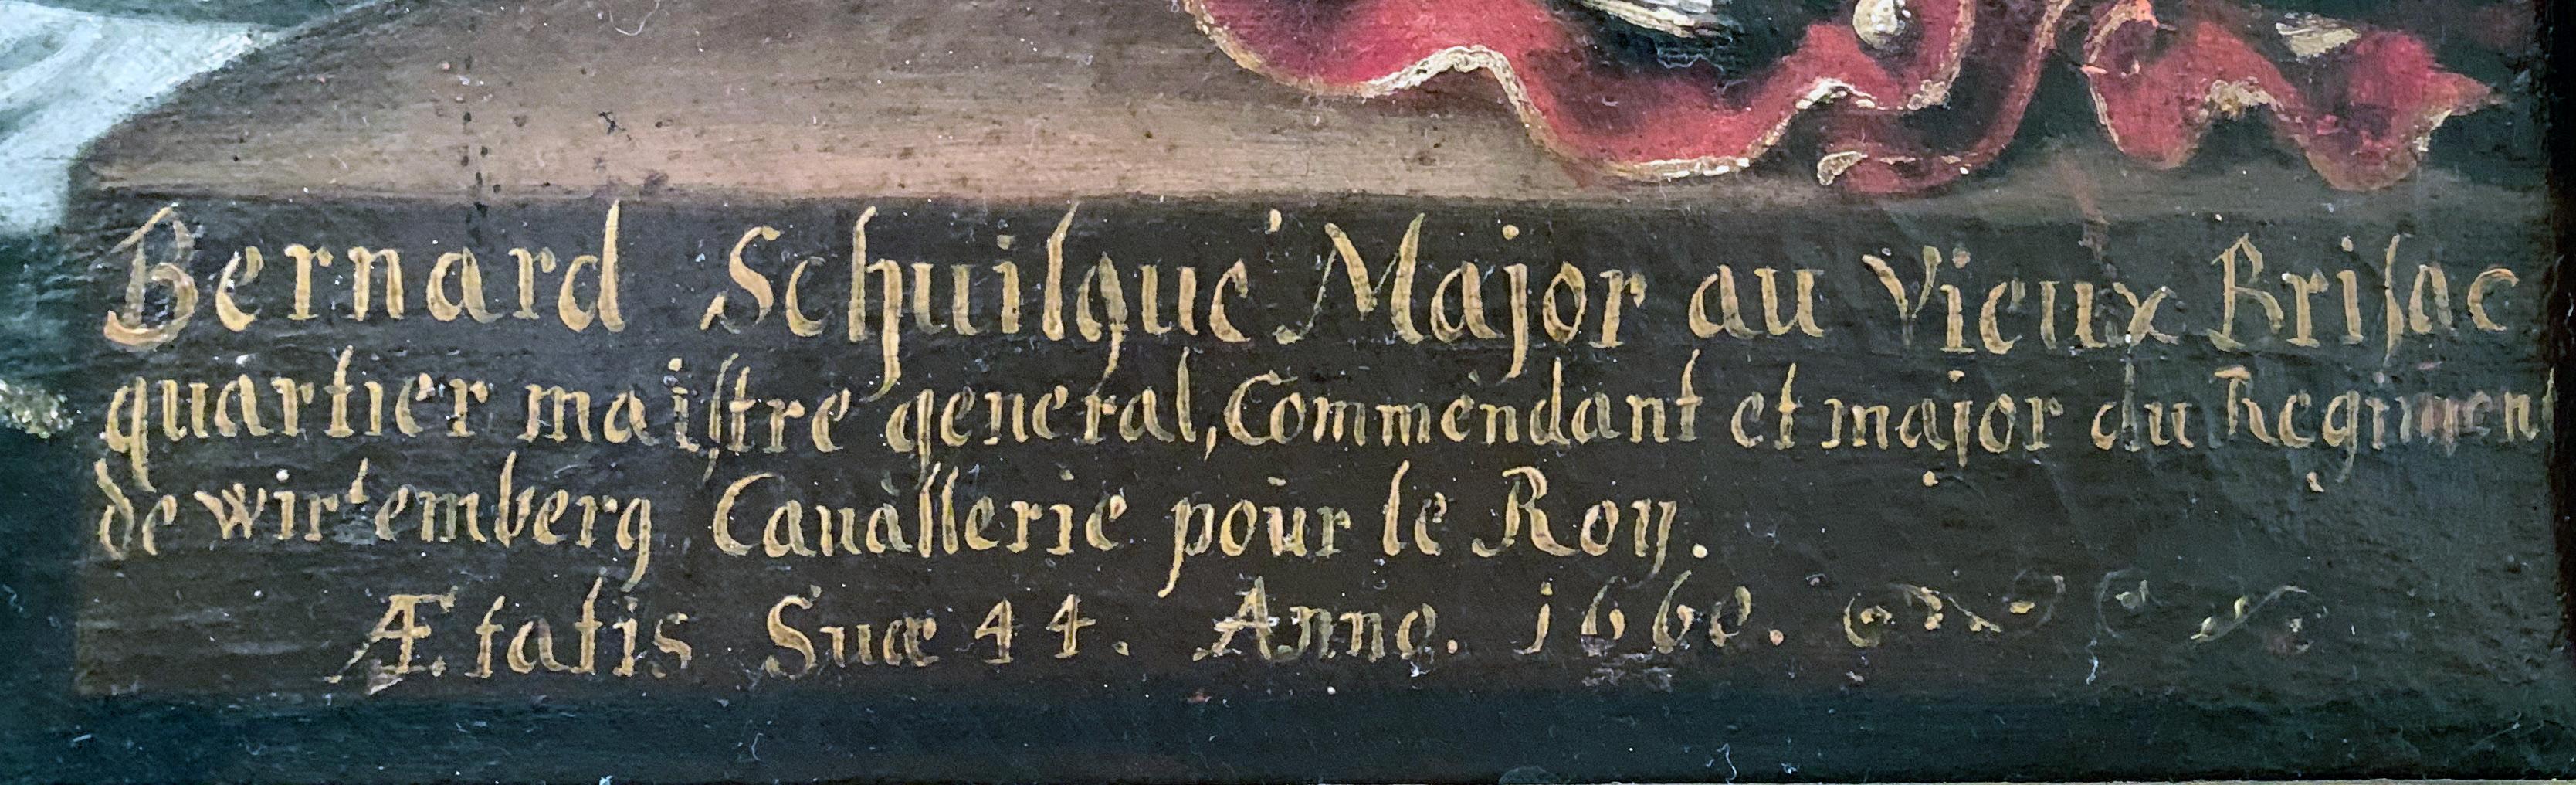 Bernard Schuilgué Major au Vieux Briſac
quartier maiſtre general, Commendant et major du Regiment
de wirtemberg Cauallerie pour le Roy.
Ætatis Suæ 44. Anno. 1660.